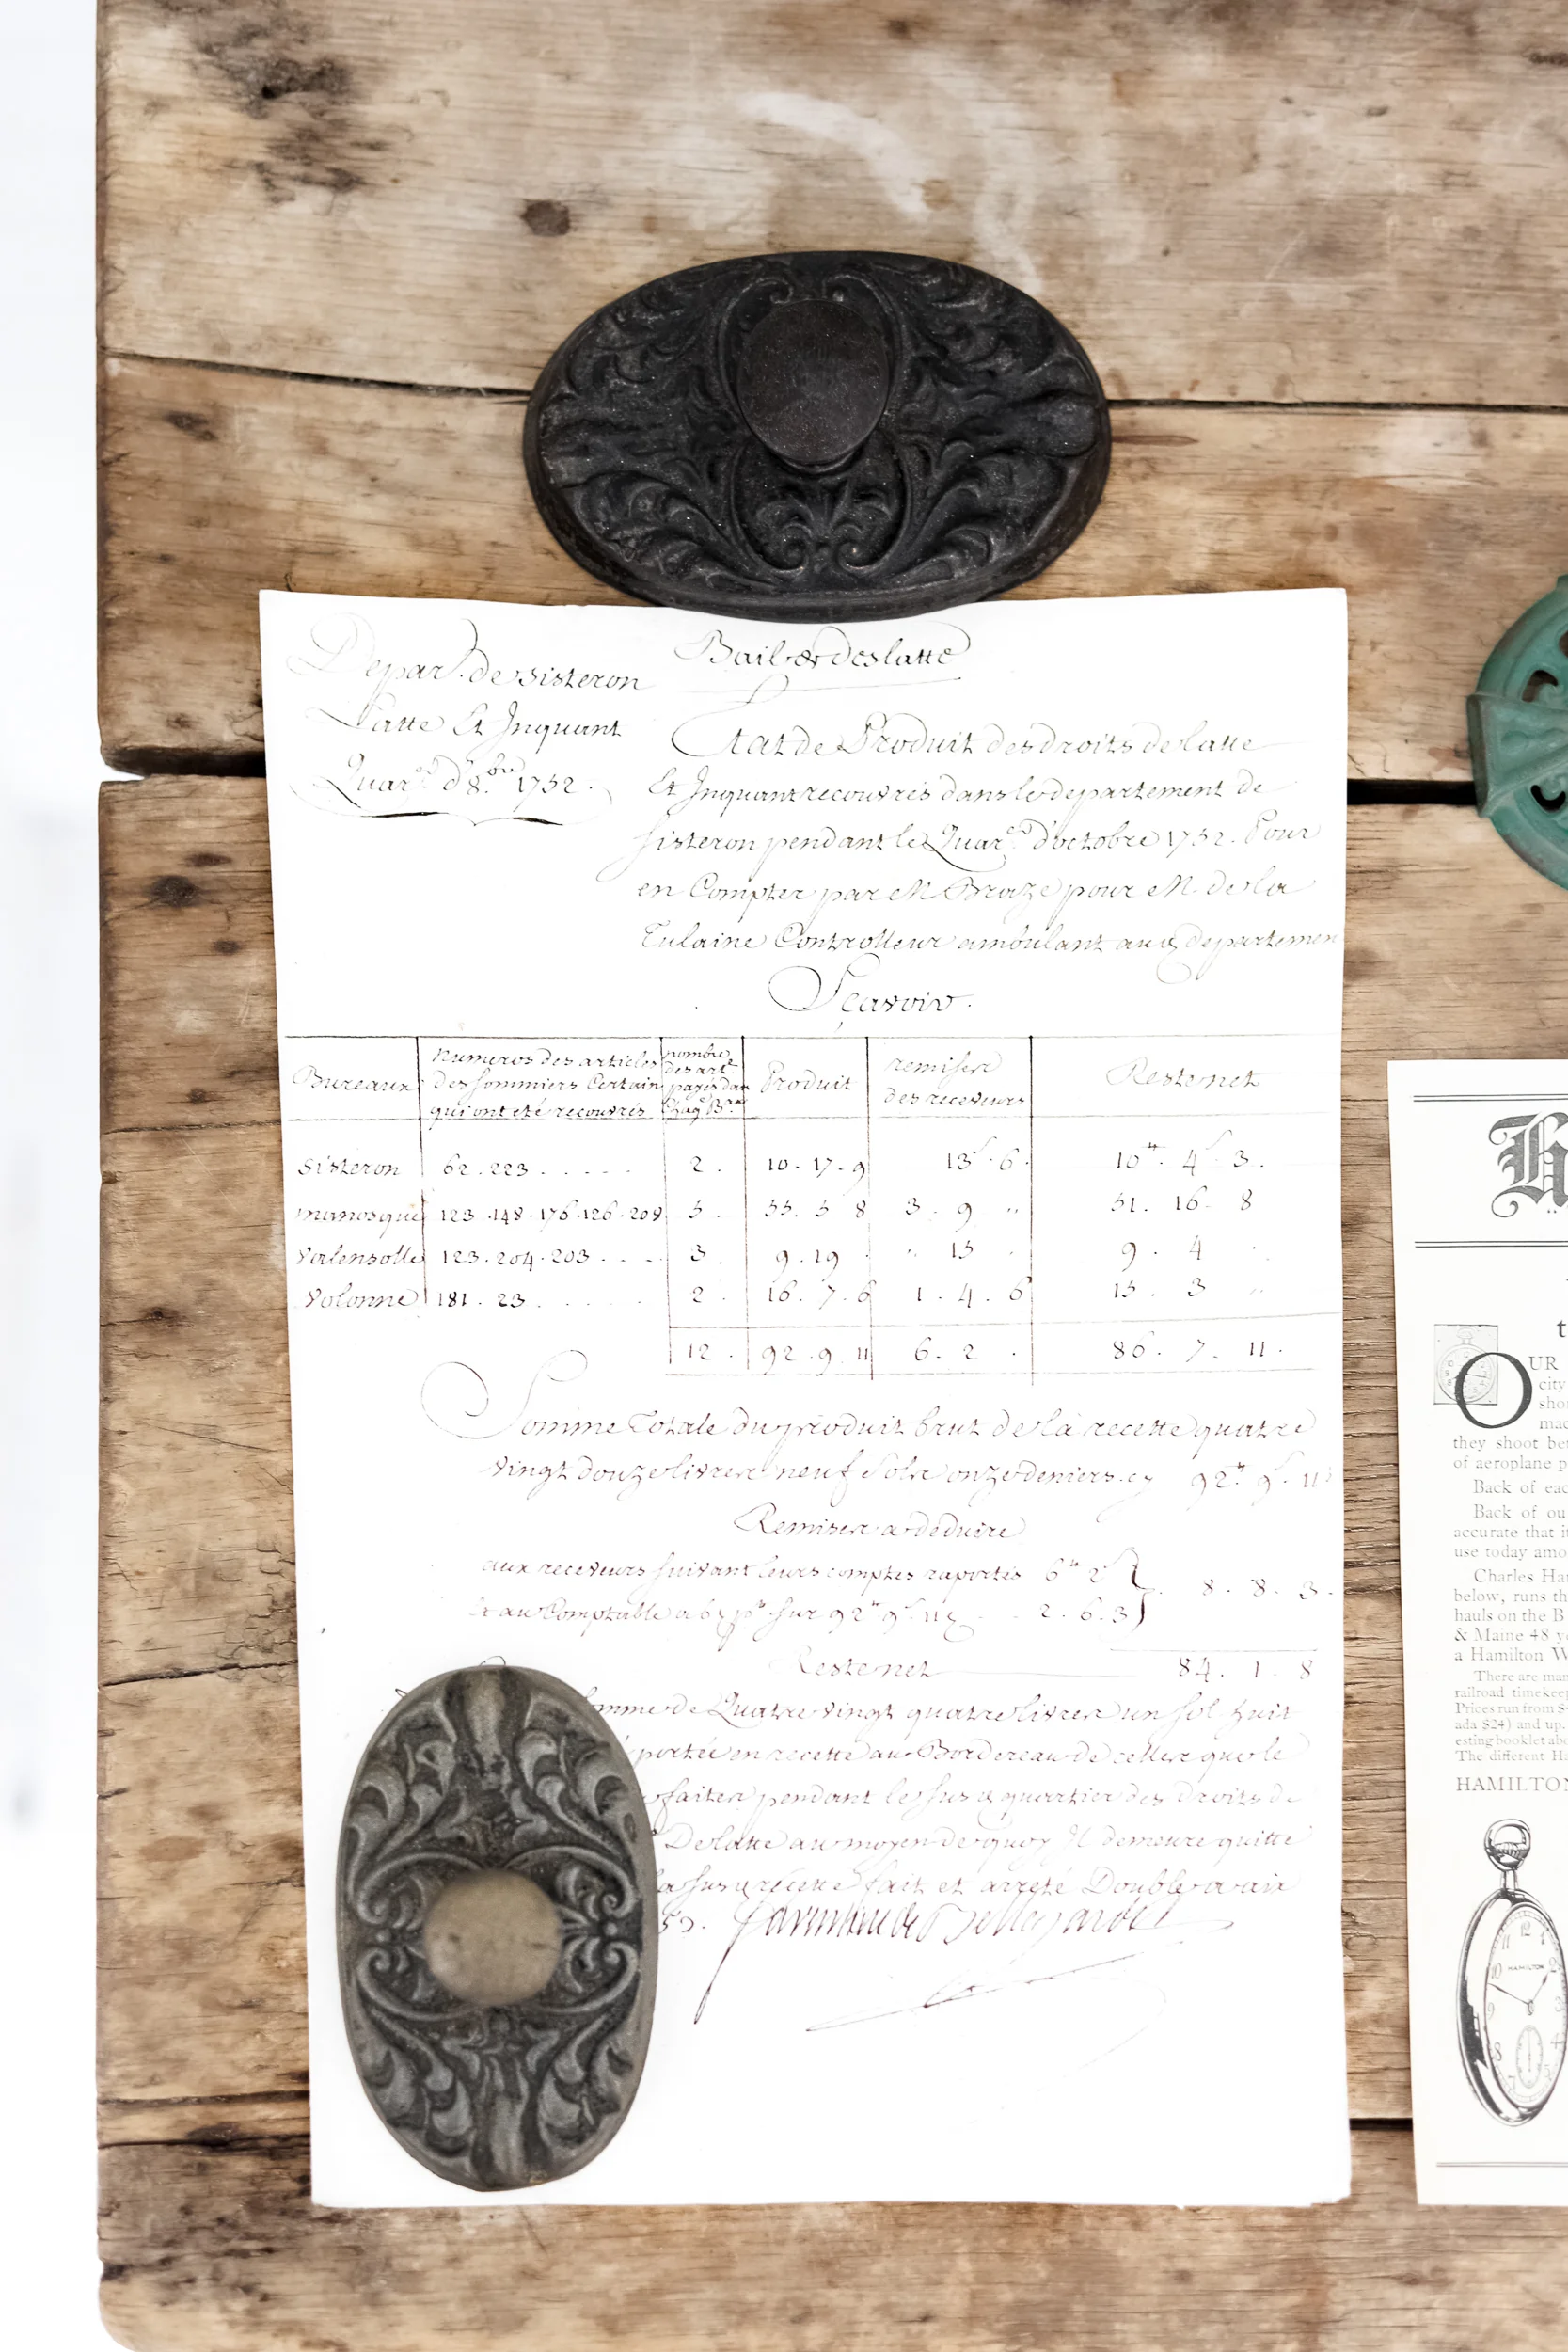 Depar.t de Sisteron
Latte Et Inquant
Quar.er d'8.bre 1752.
Bail de deslatte
Etat de Produit des droits de latte
Et Inquant recouvrés dans le departement de
Sisteron pendant le Quar.er d'octobre 1752. Pour
en Compter par M Braze pour M de la
Tulaine Controlleur ambulant aud departemen
Sçavoir.
Bureaux
numeros des articles
des sommiers Certain
qui ont eté recouvrés
nombre
des art
payés dan
chaq B.au
Produit
remises
des receveurs
Reste net
Sisteron 62. 223 . . . . . 2. 10. 17. 9 13s. 6. 10tt. 4s. 3.
manosque 123. 148. 176. 126. 209 5. 55. 5 8 3. 9 " 51. 16. 8
Valensolle 123. 204. 203 . . . . 3. 9. 19 . " 15 . 9. 4 .
Volonne 181. 23 . . . . . 2. 16. 7. 6 1. 4. 6 15. 3 "
12. 92. 9. 11 6. 2 . 86. 7. 11.
Somme Totale du produit brut de la recette quatre
vingt douze livres neuf sols onze deniers. cy 92tt 9s 11
Remises a deduire
aux receveurs suivant leurs comptes raportés 6tt 2s
Et au Comptable a 6d ptt sur 92tt 9s 11d . . 2. 6. 3
8. 8. 3.
Reste net 84. 1. 8
somme de Quatre vingt quatre livres un sol huit
portée en recette au Bordereau de celles que le
faites pendant le susd quartier des Droits de
De latte au moyen de quoy Il demeure quitte
la susd recette fait et arreté Double a aix
53. Bellegarde
OUR
city
sho
mac
they shoot be
of aeroplane p
Back of eac
Back of ou
accurate that i
use today amo
Charles Ha
below, runs th
hauls on the B
& Maine 48 y
a Hamilton W
There are man
railroad timekee
Prices run from $
ada $24) and up.
esting booklet abo
The different H
HAMILTON
HAMILTON